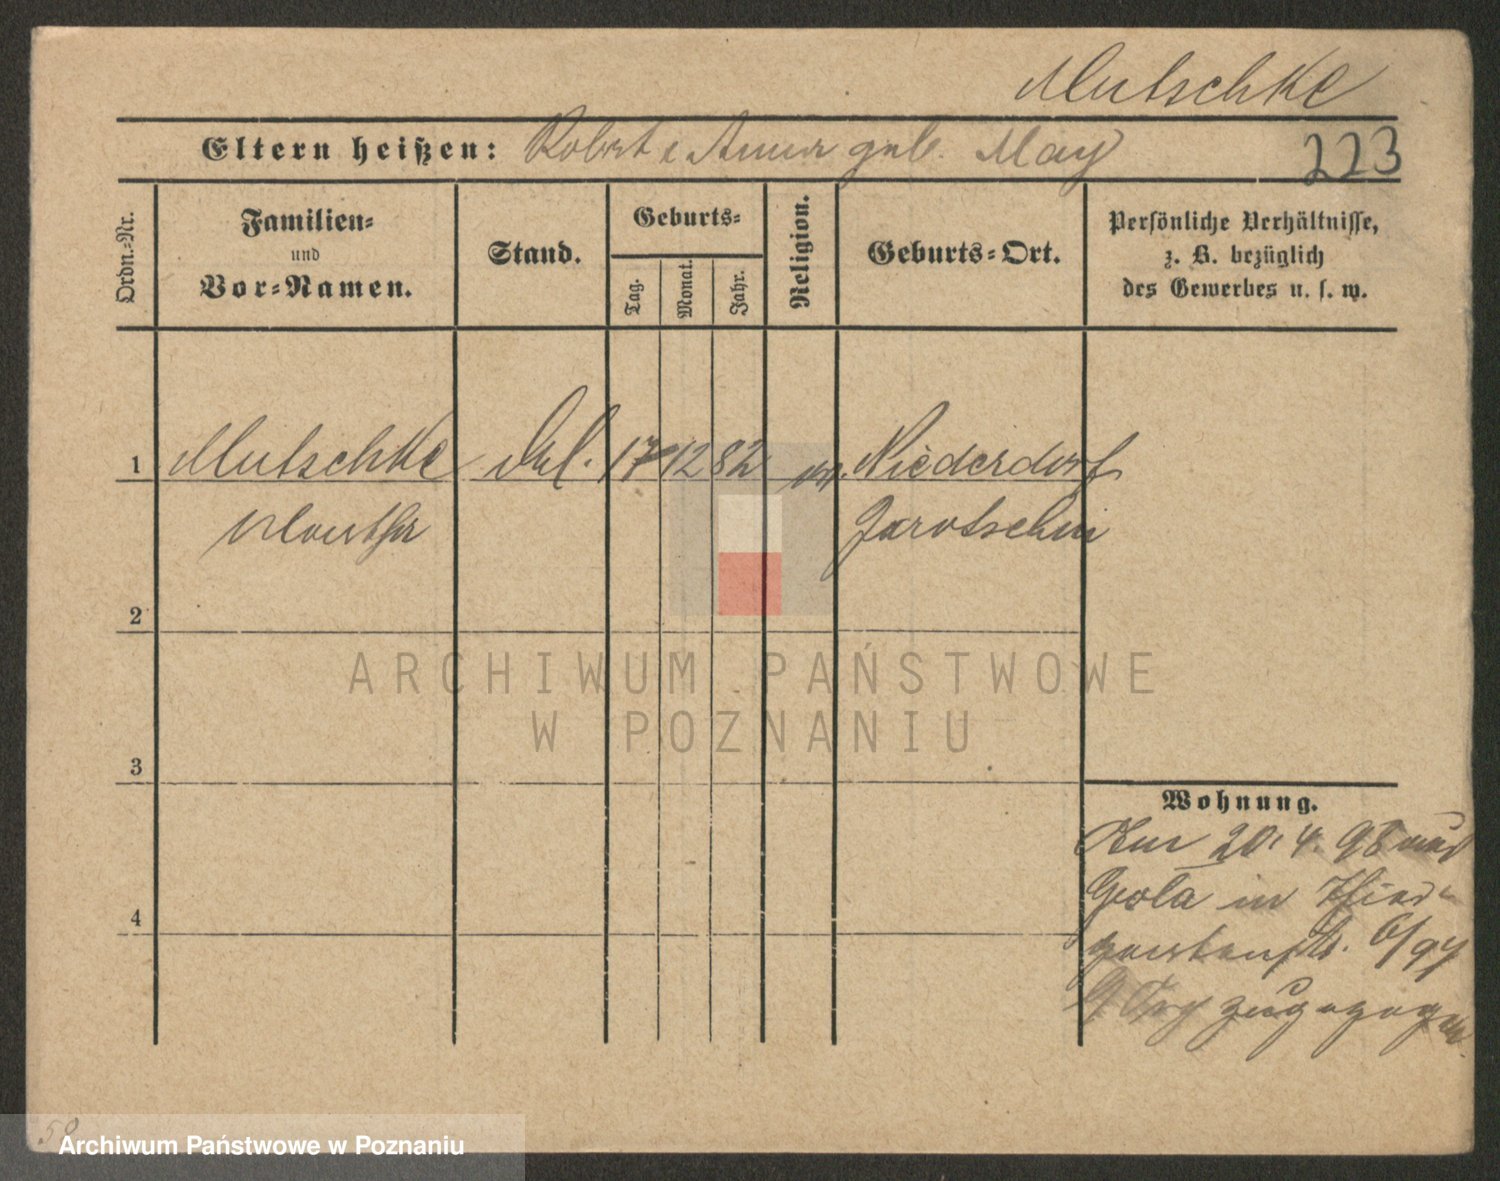 Mutschke
Eltern heißen: Robert u Anna geb. May
223
Ordn.-Nr.
Familien-
und
Vor-Namen.
Stand.
Geburts-
Tag.
Monat.
Jahr.
Religion.
Geburts-Ort.
Persönliche Verhältnisse,
z. B. bezüglich
des Gewerbes u. s. w.
1 Mutschke Frl. 17 12 82 ev. Niederdorf
Martha Jarotschin
2
3
4
Wohnung.
Am 20.4. 98 nach
Gola in
zugezogen.
ARCHIWUM PAŃSTWOWE
W POZNANIU
58
Archiwum Państwowe w Poznaniu